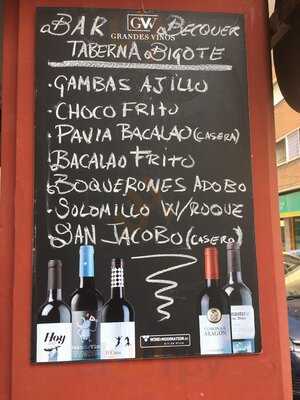 BAR GW BECQUER
GRANDES VINOS
TABERNA BIGOTE
· GAMBAS AJILLO
· CHOCO FRITO
· PAVIA BACALAO (CASERA)
BACALAO FRITO
BOQUERONES ADOBO
· SOLOMILLO W/ROQUE
SAN JACOBO (CASERO)
Hoy
CORONA DE
ARAGÓN
WINE in MODERATION